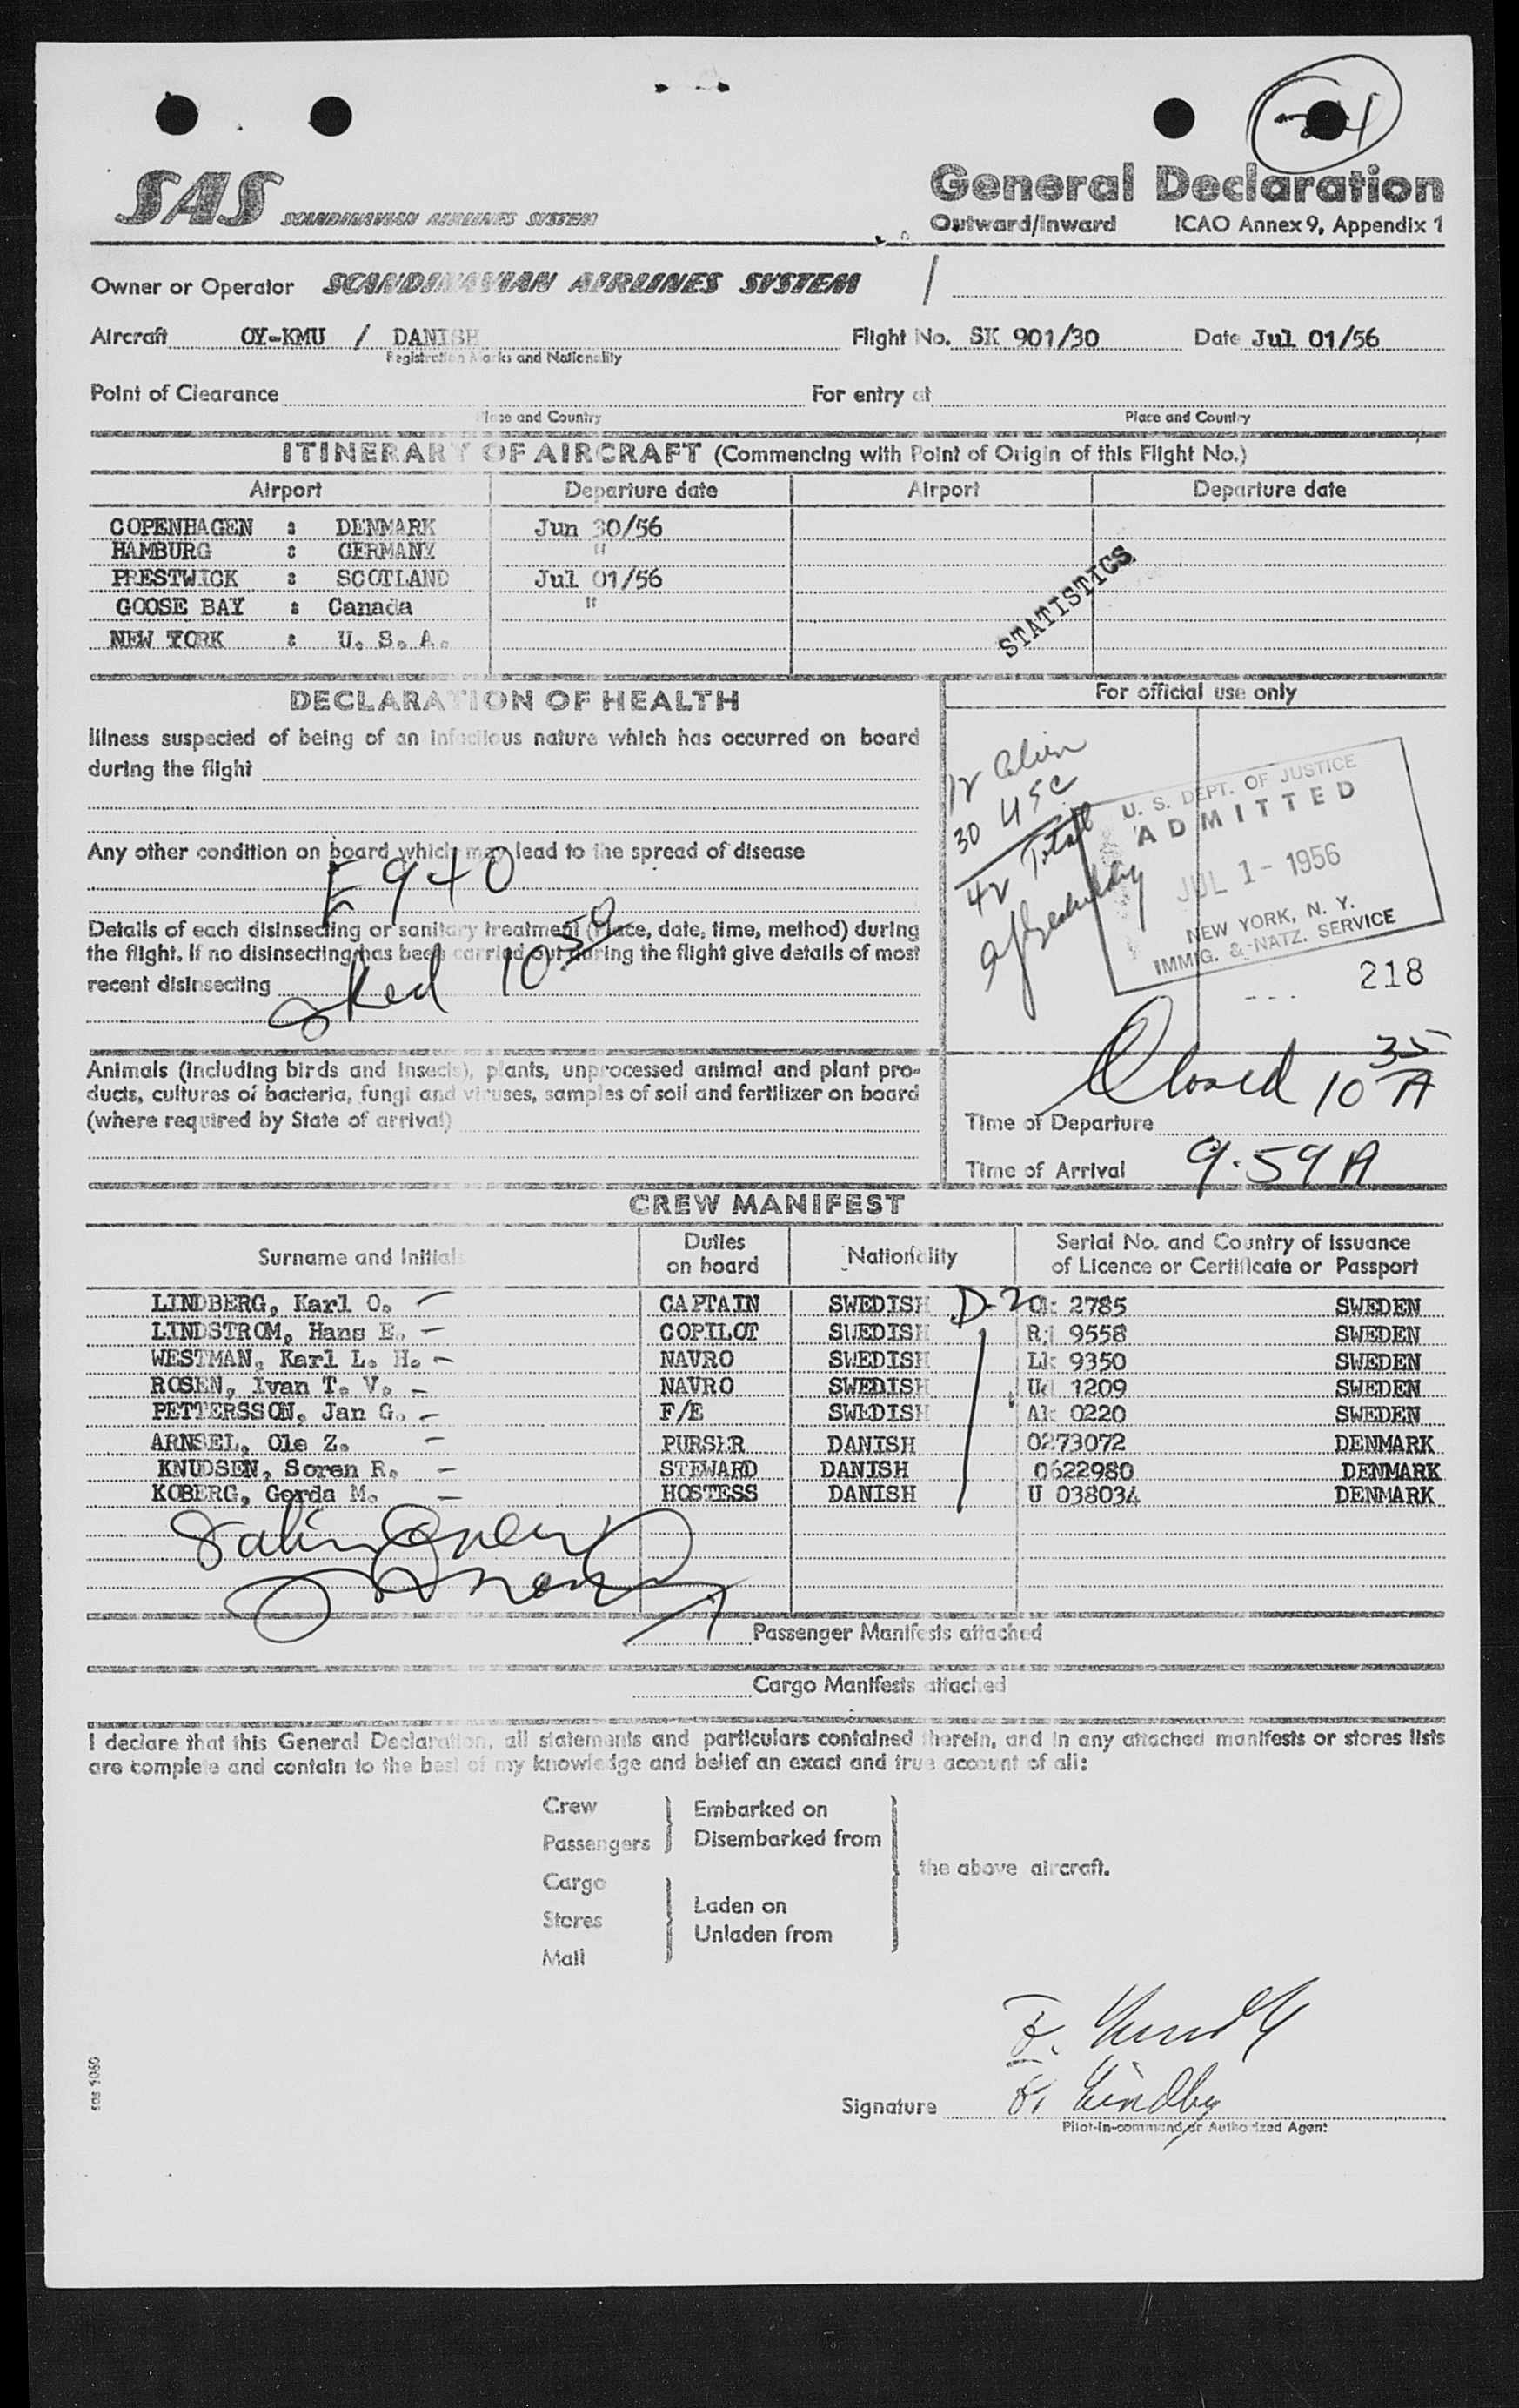 SAS SCANDINAVIAN AIRLINES SYSTEM
General Declaration
Outward/Inward ICAO Annex 9, Appendix 1
Owner or Operator SCANDINAVIAN AIRLINES SYSTEM
Aircraft OY-KMU / DANISH Flight No. SK 901/30 Date Jul 01/56
Registration Marks and Nationality
Point of Clearance For entry at
Place and Country Place and Country
ITINERARY OF AIRCRAFT (Commencing with Point of Origin of this Flight No.)
Airport Departure date Airport Departure date
COPENHAGEN : DENMARK Jun 30/56
HAMBURG : GERMANY "
PRESTWICK : SCOTLAND Jul 01/56
GOOSE BAY : Canada "
NEW YORK : U. S. A.
STATISTICS
DECLARATION OF HEALTH
Illness suspected of being of an infectious nature which has occurred on board
during the flight
Any other condition on board which may lead to the spread of disease
E 940
Details of each disinsecting or sanitary treatment (Place, date, time, method) during
the flight. If no disinsecting has been carried out during the flight give details of most
recent disinsecting
sked 10 50
Animals (including birds and insects), plants, unprocessed animal and plant pro-
ducts, cultures of bacteria, fungi and viruses, samples of soil and fertilizer on board
(where required by State of arrival)
For official use only
12 Alien
30 USC
42 Total
U. S. DEPT. OF JUSTICE
ADMITTED
JUL 1 - 1956
NEW YORK, N. Y.
IMMIG. & NATZ. SERVICE
218
Closed 10 35 A
Time of Departure
Time of Arrival 9.59 A
CREW MANIFEST
Surname and Initials Duties on board Nationality Serial No. and Country of Issuance of Licence or Certificate or Passport
LINDBERG, Karl O. CAPTAIN SWEDISH D-2 Ok 2785 SWEDEN
LINDSTROM, Hans E. COPILOT SWEDISH Rj 9558 SWEDEN
WESTMAN, Karl L. H. NAVRO SWEDISH Lk 9350 SWEDEN
ROSEN, Ivan T. V. NAVRO SWEDISH Ud 1209 SWEDEN
PETTERSSON, Jan G. F/E SWEDISH Ak 0220 SWEDEN
ARNSEL, Ole Z. PURSER DANISH 0273072 DENMARK
KNUDSEN, Soren R. STEWARD DANISH 0622980 DENMARK
KOBERG, Gerda M. HOSTESS DANISH U 038034 DENMARK
Passenger Manifests attached
Cargo Manifests attached
I declare that this General Declaration, all statements and particulars contained therein, and in any attached manifests or stores lists
are complete and contain to the best of my knowledge and belief an exact and true account of all:
Crew
Passengers
Embarked on
Disembarked from
Cargo
Stores
Mail
Laden on
Unladen from
the above aircraft.
Signature
Pilot-in-command or Authorized Agent
sas 1060